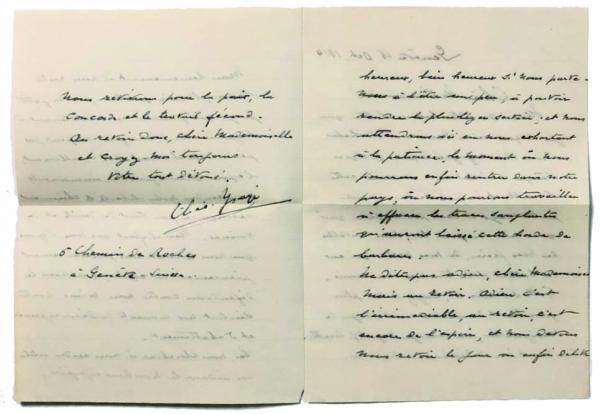 heureux, bien heureux si nous parve-
nons à l'être un peu, à pouvoir
rendre le plus léger service; et nous
attendrons ici en nous exhortant
à la patience, le moment où nous
pourrons enfin rentrer dans notre
pays, où nous pourrons travailler
à effacer les traces sanglantes
qu'auront laissé cette horde de
barbares.
Ne dites pas adieu, chère Mademoiselle
mais au revoir. Adieu c'est
l'irrémédiable, au revoir, c'est
encore de l'espoir, et nous devons
nous revoir le jour où enfin
nous pour la paix, la
concorde et le travail fécond.
Au revoir donc, chère Mademoiselle
et croyez moi toujours
Votre tout dévoué.
5 Chemin de Roches
à Genève - Suisse